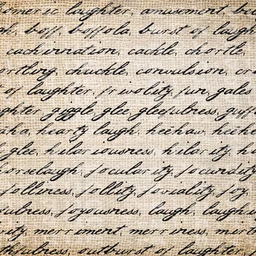 laughter, amusement,
boff, boffola, burst of laugh
cachinnation, cackle, chortle,
chortling, chuckle, convulsion,
of laughter, frivolity, fun, gales
giggle, glee, gleefulness,
hearty laugh, heehaw,
glee, hilariousness, hilarity,
jocularity, jocundity
jolliness, jollity, joviality, joy,
joyousness, laugh, laugh
merriment, merriness,
outburst of laughter,